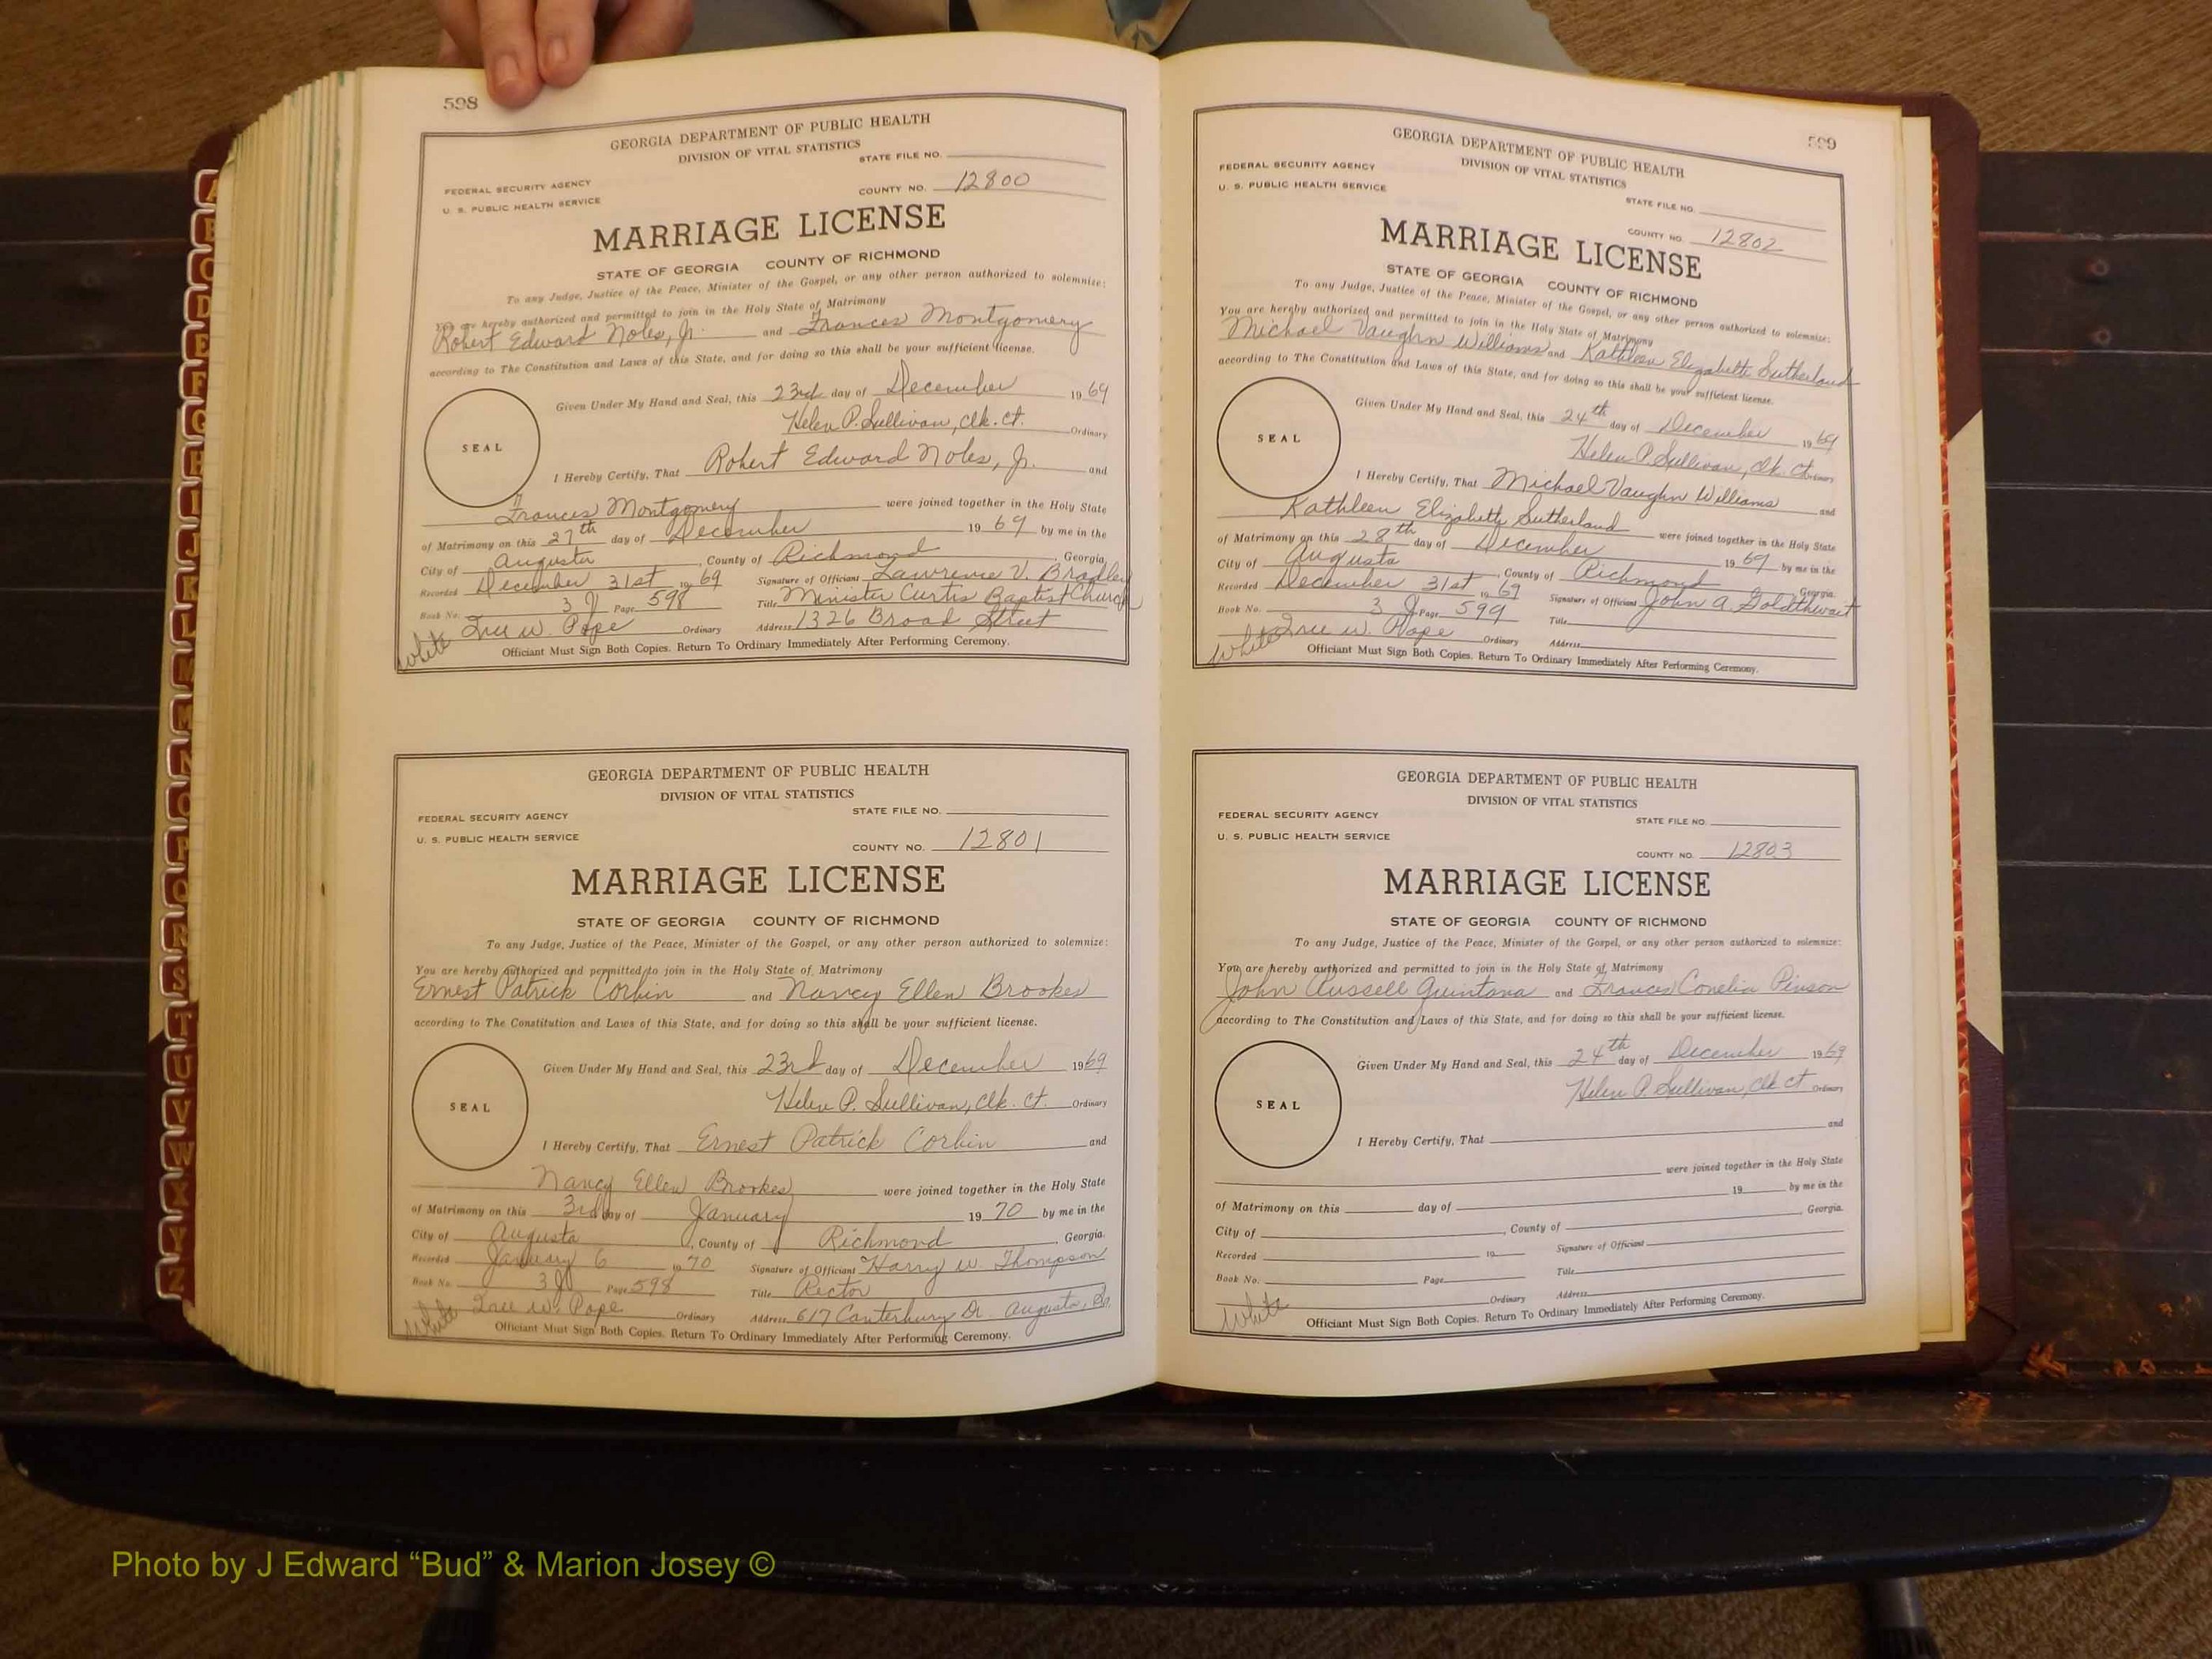 598
GEORGIA DEPARTMENT OF PUBLIC HEALTH
DIVISION OF VITAL STATISTICS
STATE FILE NO.
FEDERAL SECURITY AGENCY
COUNTY NO. 12800
U. S. PUBLIC HEALTH SERVICE
MARRIAGE LICENSE
STATE OF GEORGIA COUNTY OF RICHMOND
To any Judge, Justice of the Peace, Minister of the Gospel, or any other person authorized to solemnize:
You are hereby authorized and permitted to join in the Holy State of Matrimony
Robert Edward Noles, Jr. and Frances Montgomery
according to The Constitution and Laws of this State, and for doing so this shall be your sufficient license.
Given Under My Hand and Seal, this 23rd day of December 1969
Helen P. Sullivan, Clk. Ct. Ordinary
SEAL
I Hereby Certify, That Robert Edward Noles, Jr. and
Frances Montgomery were joined together in the Holy State
of Matrimony on this 27th day of December 1969 by me in the
City of Augusta, County of Richmond, Georgia
Recorded December 31st 1969 Signature of Officiant Lawrence V. Bradley
Book No. 3 J Page 598 Title Minister Curtis Baptist Church
White W. Pope Ordinary Address 1326 Broad Street
Officiant Must Sign Both Copies. Return To Ordinary Immediately After Performing Ceremony.
GEORGIA DEPARTMENT OF PUBLIC HEALTH
DIVISION OF VITAL STATISTICS
STATE FILE NO.
FEDERAL SECURITY AGENCY
U. S. PUBLIC HEALTH SERVICE
COUNTY NO. 12801
MARRIAGE LICENSE
STATE OF GEORGIA COUNTY OF RICHMOND
To any Judge, Justice of the Peace, Minister of the Gospel, or any other person authorized to solemnize:
You are hereby authorized and permitted to join in the Holy State of Matrimony
Ernest Patrick Corbin and Nancy Ellen Brookes
according to The Constitution and Laws of this State, and for doing so this shall be your sufficient license.
Given Under My Hand and Seal, this 23rd day of December 1969
Helen P. Sullivan, Clk. Ct. Ordinary
SEAL
I Hereby Certify, That Ernest Patrick Corbin and
Nancy Ellen Brookes were joined together in the Holy State
of Matrimony on this 3rd day of January 1970 by me in the
City of Augusta, County of Richmond, Georgia.
Recorded January 6 1970 Signature of Officiant Harry W. Thompson
Book No. 3 J Page 598 Title Rector
White W. Pope Ordinary Address 617 Canterbury Dr. Augusta, Ga
Officiant Must Sign Both Copies. Return To Ordinary Immediately After Performing Ceremony.
599
GEORGIA DEPARTMENT OF PUBLIC HEALTH
DIVISION OF VITAL STATISTICS
FEDERAL SECURITY AGENCY
U. S. PUBLIC HEALTH SERVICE
STATE FILE NO.
COUNTY NO. 12802
MARRIAGE LICENSE
STATE OF GEORGIA COUNTY OF RICHMOND
To any Judge, Justice of the Peace, Minister of the Gospel, or any other person authorized to solemnize:
You are hereby authorized and permitted to join in the Holy State of Matrimony
Michael Vaughn Williams and Kathleen Elizabeth Sutherland
according to The Constitution and Laws of this State, and for doing so this shall be your sufficient license.
Given Under My Hand and Seal, this 24th day of December 1969
Helen P. Sullivan, Clk. Ct. Ordinary
SEAL
I Hereby Certify, That Michael Vaughn Williams and
Kathleen Elizabeth Sutherland were joined together in the Holy State
of Matrimony on this 28th day of December 1969 by me in the
City of Augusta, County of Richmond, Georgia.
Recorded December 31st 1969 Signature of Officiant John A. Goldthwait
Book No. 3 J Page 599 Title
White W. Pope Ordinary Address
Officiant Must Sign Both Copies. Return To Ordinary Immediately After Performing Ceremony.
GEORGIA DEPARTMENT OF PUBLIC HEALTH
DIVISION OF VITAL STATISTICS
FEDERAL SECURITY AGENCY
STATE FILE NO.
U. S. PUBLIC HEALTH SERVICE
COUNTY NO. 12803
MARRIAGE LICENSE
STATE OF GEORGIA COUNTY OF RICHMOND
To any Judge, Justice of the Peace, Minister of the Gospel, or any other person authorized to solemnize:
You are hereby authorized and permitted to join in the Holy State of Matrimony
John Russell Quintana and Frances Conelia Pinson
according to The Constitution and Laws of this State, and for doing so this shall be your sufficient license.
Given Under My Hand and Seal, this 24th day of December 1969
Helen P. Sullivan, Clk Ct Ordinary
SEAL
I Hereby Certify, That and
were joined together in the Holy State
of Matrimony on this day of 19 by me in the
City of , County of Georgia.
Recorded 19 Signature of Officiant
Book No. Page Title
White Ordinary Address
Officiant Must Sign Both Copies. Return To Ordinary Immediately After Performing Ceremony.
A
B
C
D
E
F
G
H
I
J
K
L
M
M
N
O
P
Q
R
S
T
U
V
W
X
Y
Z
Photo by J Edward “Bud” & Marion Josey ©